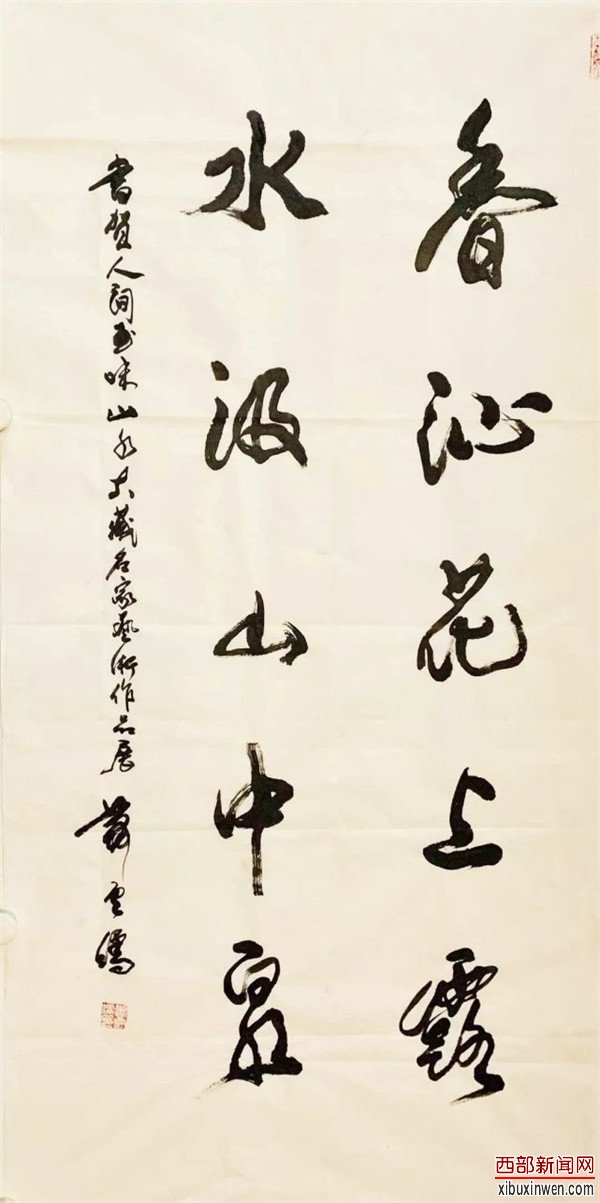 香沁花上露
水汲山中泉
書賀人间至味山水藏名家藝術作品展
西部新闻网
xibuxinwen.com